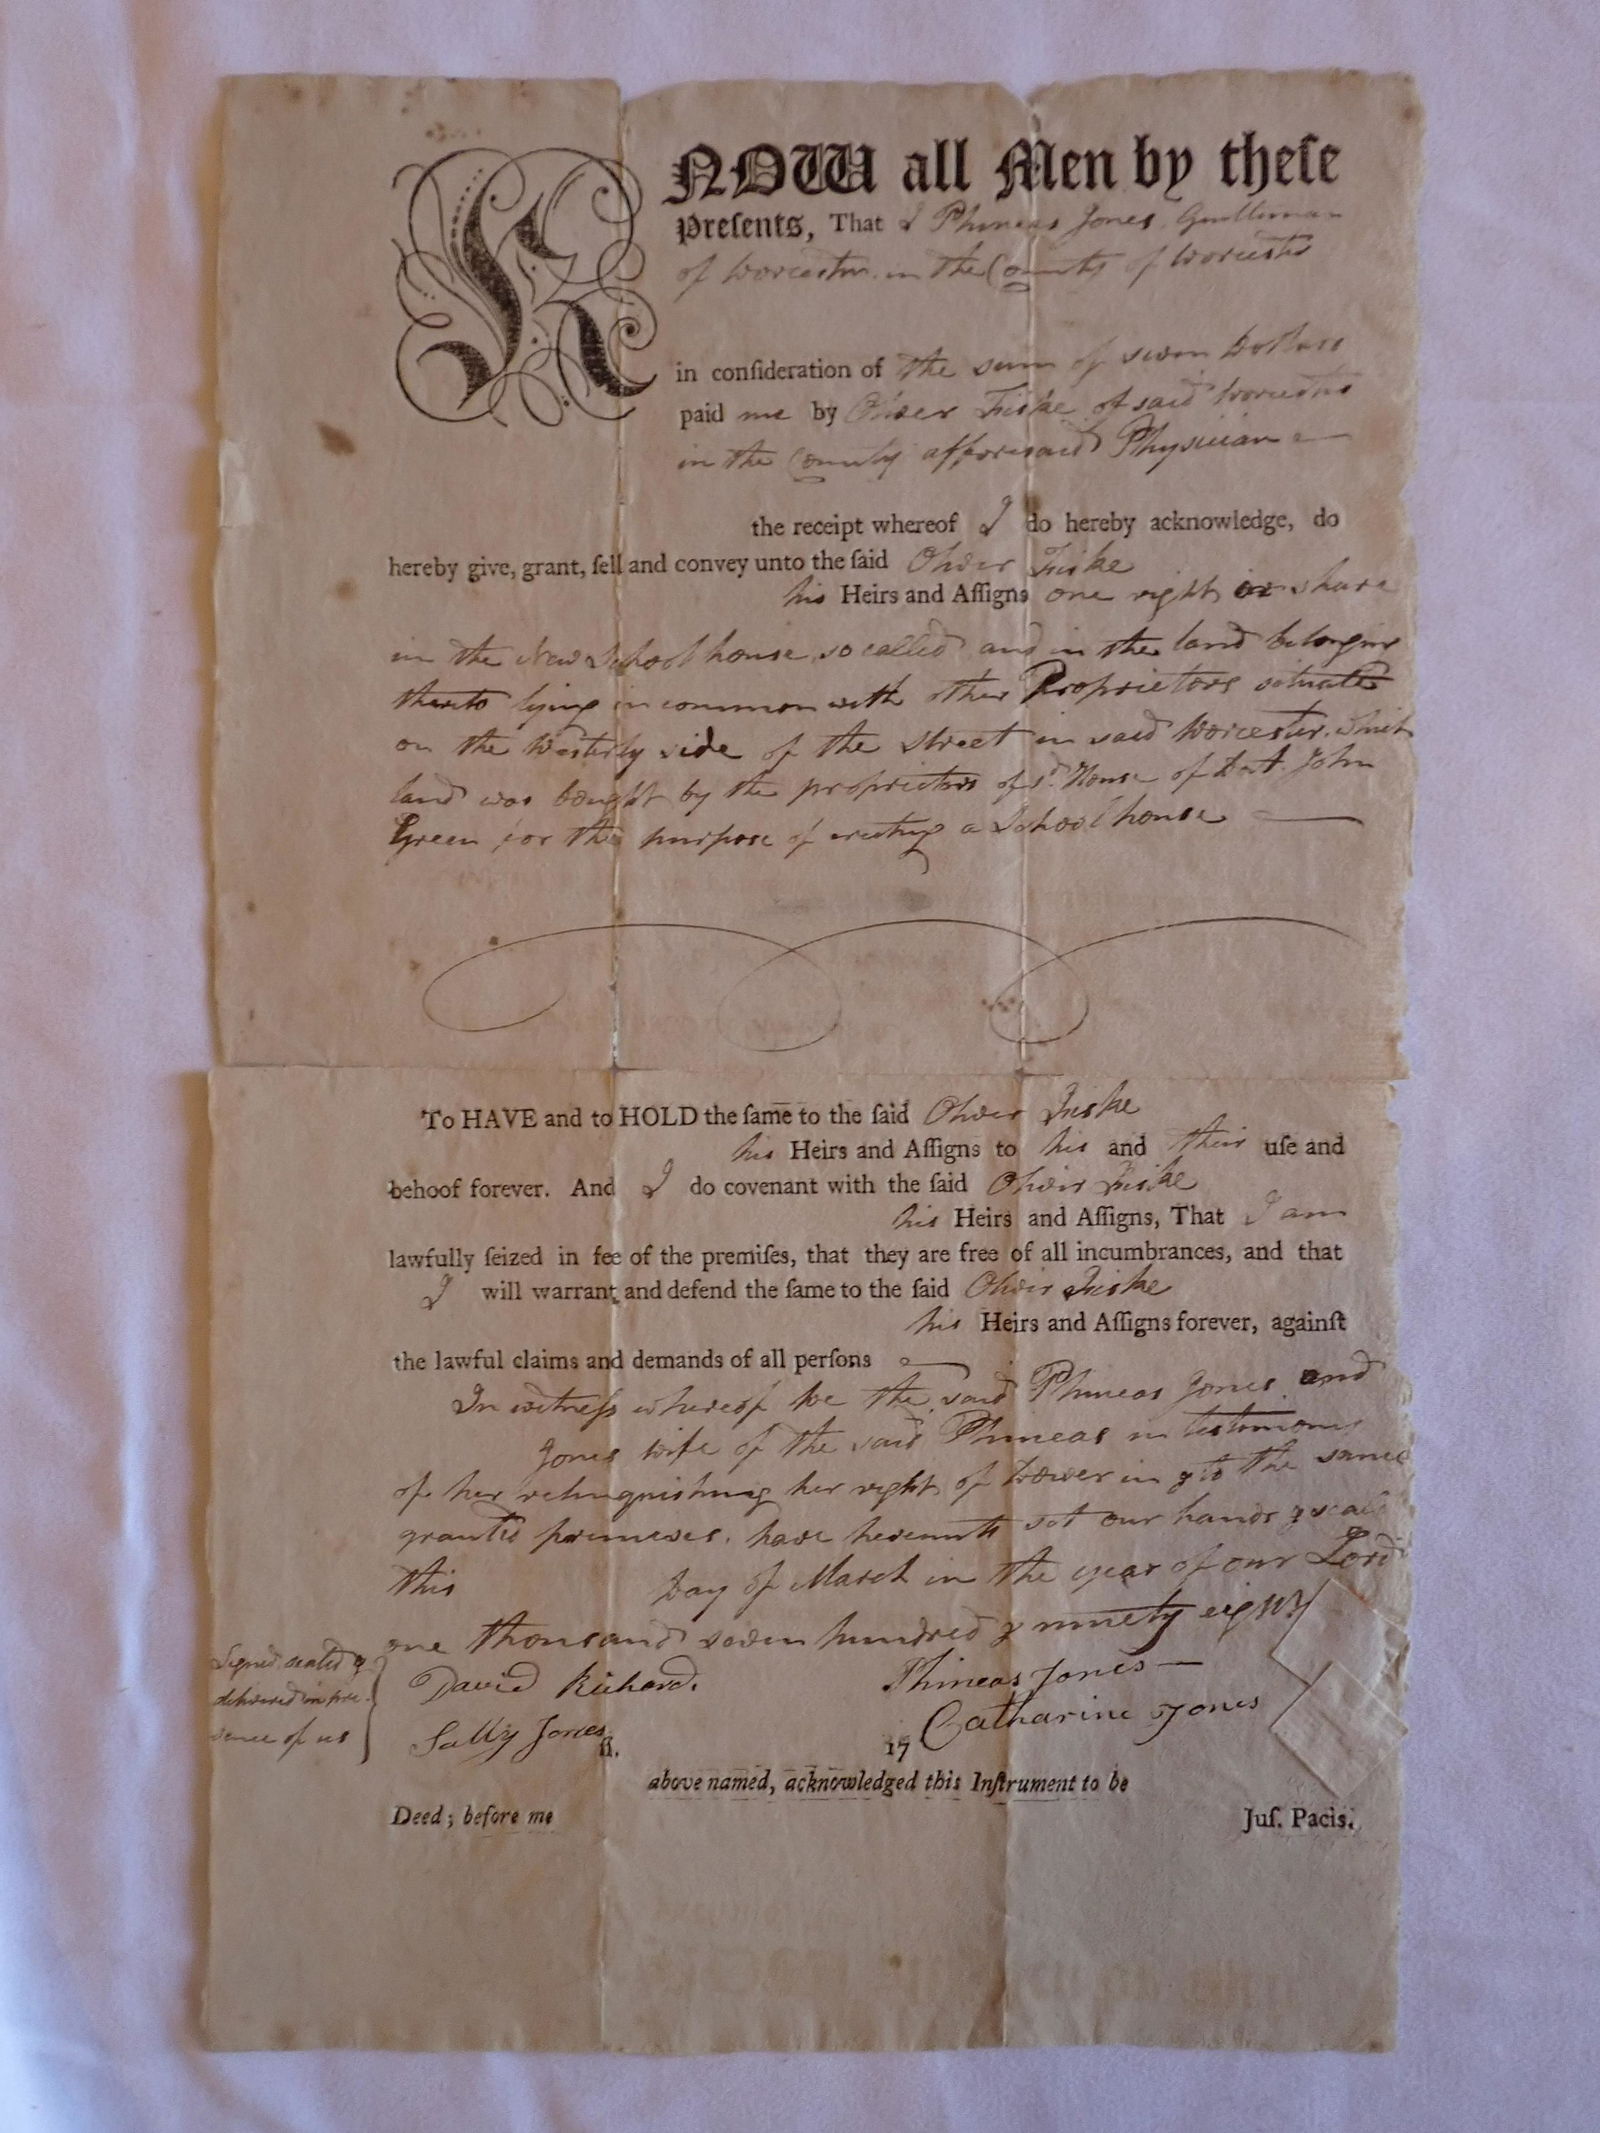 KNOW all Men by theſe
Preſents, That I Phineas Jones Gentleman
of Worcester in the County of Worcester
in conſideration of the sum of seven Dollars
paid me by Oliver Fiske of said Worcester
in the County afforesaid Physician
the receipt whereof I do hereby acknowledge, do
hereby give, grant, ſell and convey unto the ſaid Oliver Fiske
his Heirs and Aſſigns one right or share
in the New School house so called and in the land belonging
thereto lying in common with other Proprietors situated
on the Westerly side of the Street in said Worcester. which
land was bought by the proprietors of sd. House of Doct. John
Green for the purpose of erecting a School house
To HAVE and to HOLD the ſame to the ſaid Oliver Fiske
his Heirs and Aſſigns to his and their uſe and
behoof forever. And I do covenant with the ſaid Oliver Fiske
his Heirs and Aſſigns, That I am
lawfully ſeized in fee of the premiſes, that they are free of all incumbrances, and that
I will warrant and defend the ſame to the ſaid Oliver Fiske
his Heirs and Aſſigns forever, againſt
the lawful claims and demands of all perſons
In witneſs whereof we the said Phineas Jones and
Jones wife of the said Phineas in testimony
of her relinquishing her right of Dower in & to the same
granted premises. have hereunto set our hands & seals
this Day of March in the year of our Lord
one thousand seven hundred & ninety eight
Signed sealed &
delivered in pre-
sence of us
David Richard. Phineas Jones
Sally Jones Catharine Jones
ſſ. 17
above named, acknowledged this Inſtrument to be
Deed; before me Juſ. Pacis.